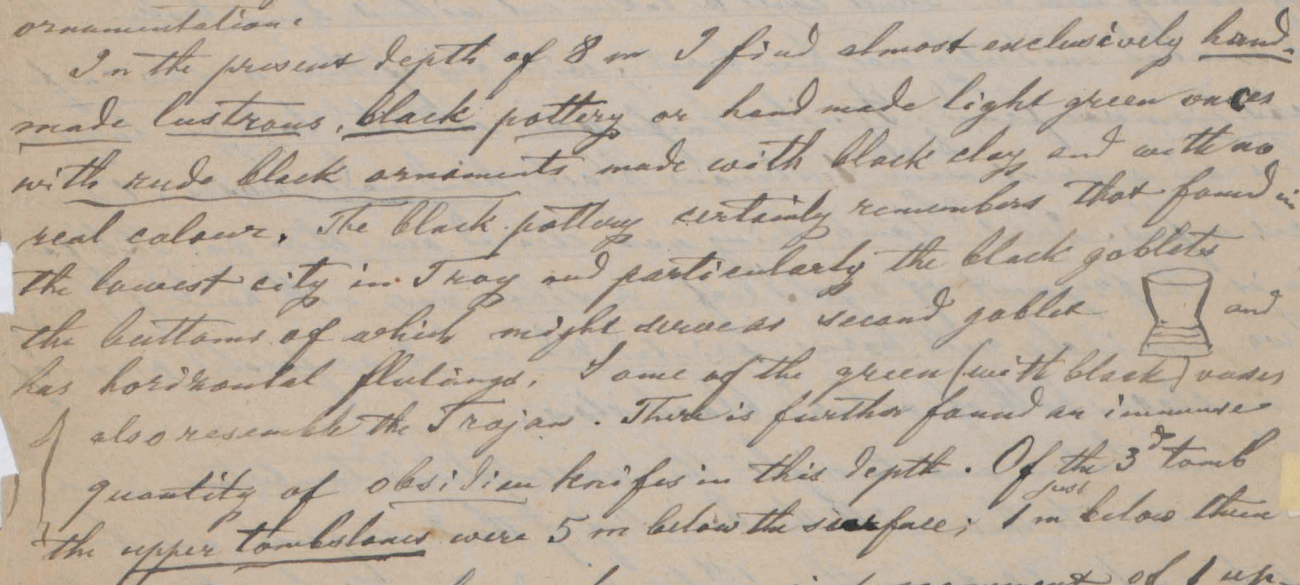 ornamentation.
In the present depth of 8 m I find almost exclusively hand-
made lustrous, black pottery or hand made light green onces
with rude black ornaments made with black clay and with no
real colour. The black pottery certainly remembers that found in
the lowest city in Troy and particularly the black goblets
the bottoms of which might serve as second goblet and
has horizontal flutings. Some of the green (with black) vases
also resemble the Trojan. There is further found an immense
quantity of obsidian knifes in this depth. Of the 3d tomb
the upper tombstones were 5 m below the surface; just 1 m below them
of 1